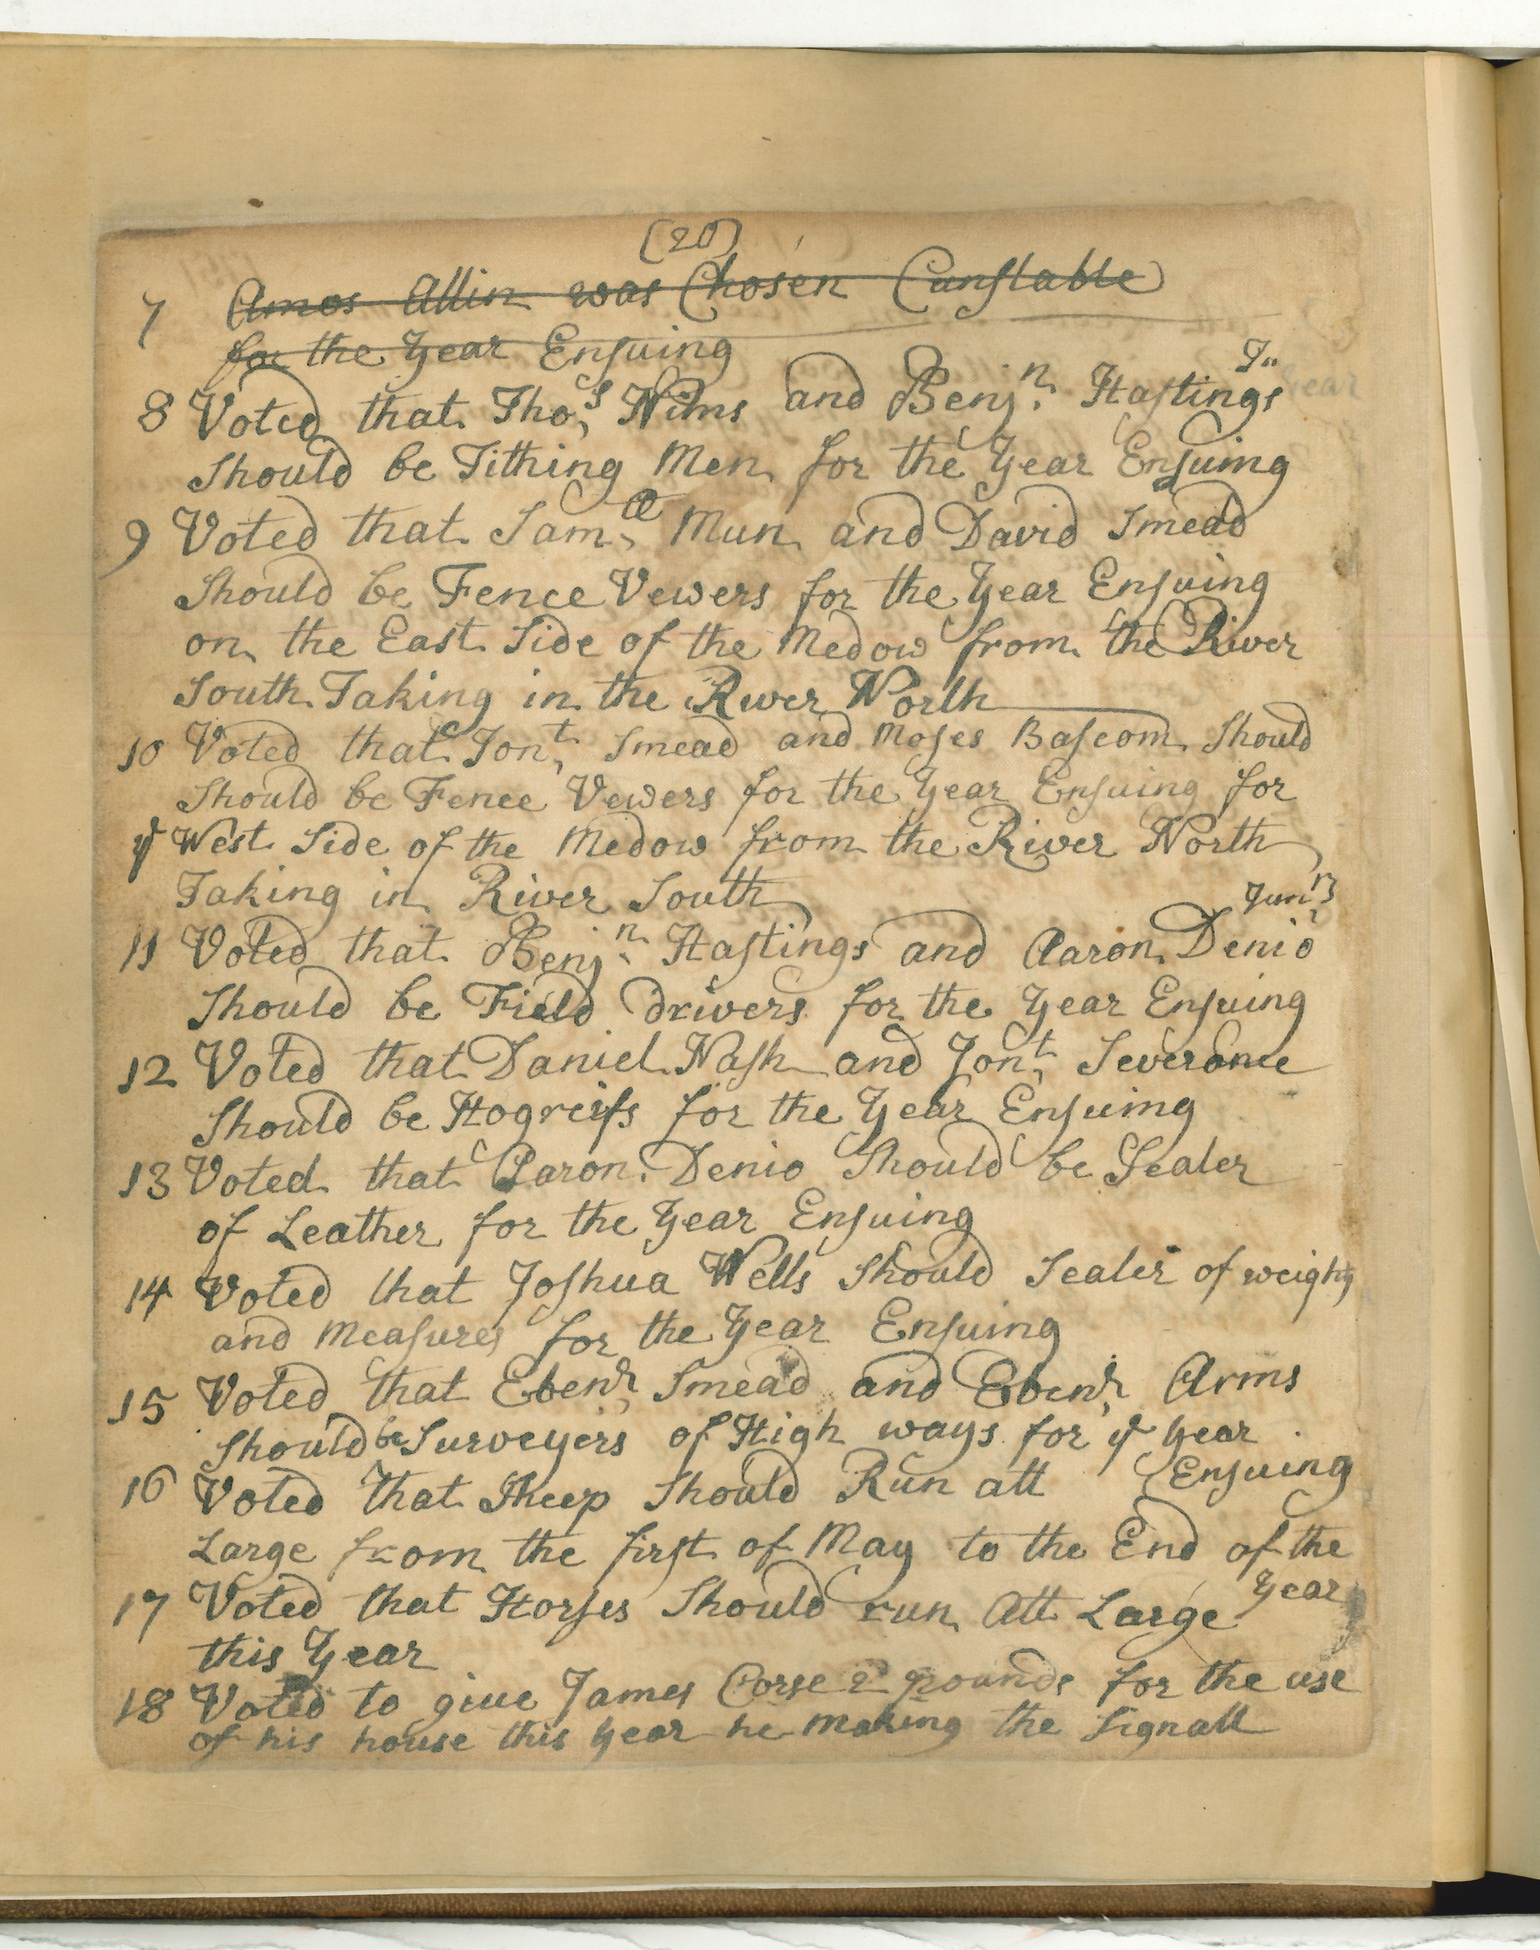 (20)
7 Amos Allin was Chosen Cunstable
for the Year Ensuing
8 Voted that Thos. Nims and Benjn. Hastings Ju
should be Tithing Men for the Year Ensuing
9 Voted that Samll. Mun and David Smead
should be Fence Vewers for the Year Ensuing
on the East Side of the Medow from the River
South Taking in the River North
10 Voted that Jont. Smead and Moses Bascom Should
Should be Fence Vewers for the Year Ensuing for
ye West Side of the Medow from the River North
Taking in River South
11 Voted that Benjn. Hastings and Aaron Denio Junr
Should be Field drivers for the Year Ensuing
12 Voted that Daniel Nash and Jont. Severance
Should be Hogreifs for the Year Ensuing
13 Voted that Aaron Denio Should be Sealer
of Leather for the Year Ensuing
14 Voted that Joshua Wells Should Sealer of weights
and Measures for the Year Ensuing
15 Voted that Ebenr. Smead and Ebenr. Arms
Should be Surveyers of High ways for ye Year
Ensuing
16 Voted that Sheep Should Run att
Large from the first of May to the End of the
Year
17 Voted that Horses Should run Att Large
this Year
18 Voted to give James Corse 2 pounds for the use
of his house this Year he making the Signall